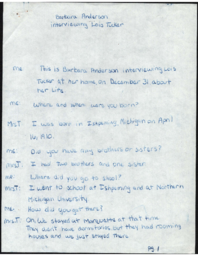 Barbara Anderson
interviewing Lois Tucker
Me: This is Barbara Anderson interviewing Lois
Tucker at her home on December 31 about
her life.
me: Where and when were you born?
Mrs T: I was born in Ishpeming Michigan on April
me: Did you have any brothers or sisters?
Mrs T: I had two brothers and one sister.
me: Where did you go to school?
Mrs T: I went to school at Ishpeming and at Northern
Michigan University.
Me: How did you get there?
Mrs T: Oh, we stayed at Marquette at that time.
They didn't have dormitories but they had rooming
houses and we just stayed there.
pg 1